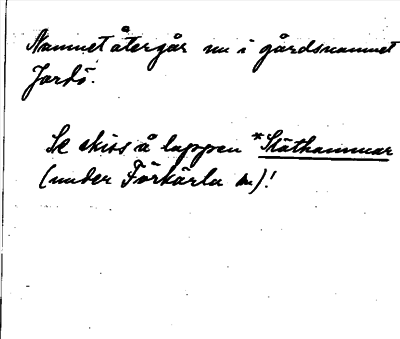 Namnet återgår nu i gårdsnamnet
Jordö.
Se skiss å lappen *Stäthammar
(under Förkärla sn)!